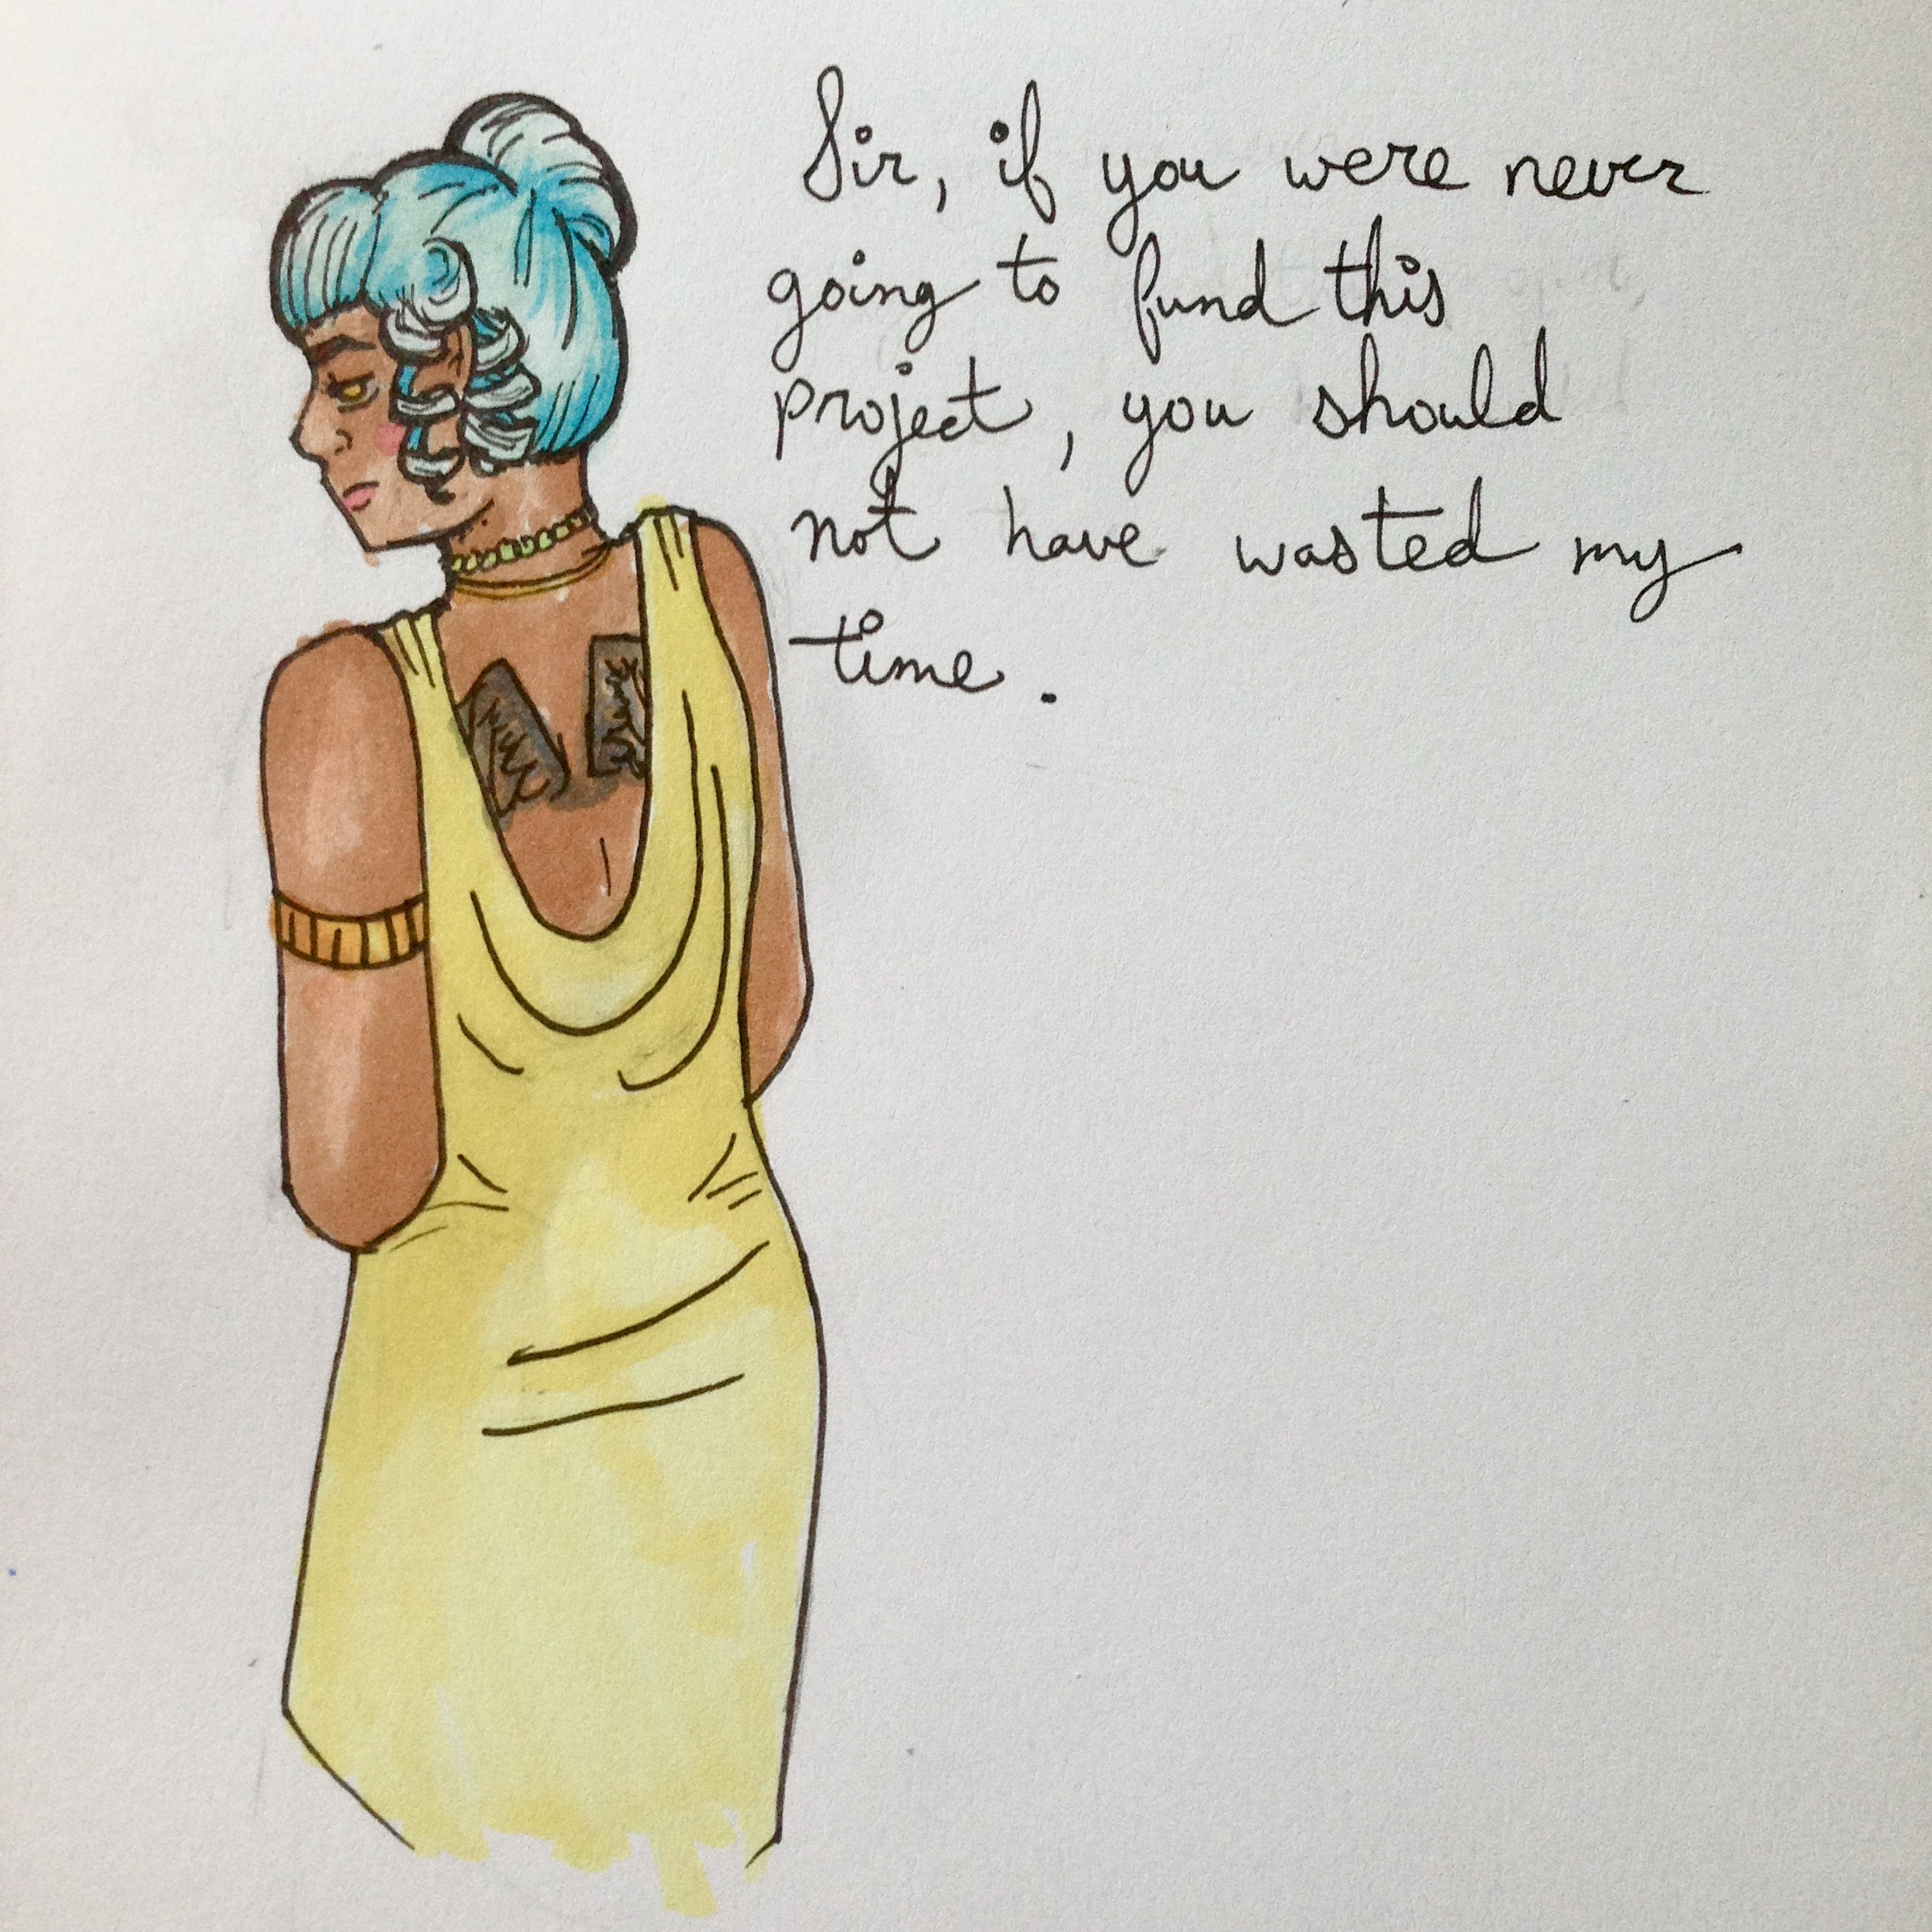 Sir, if you were never
going to fund this
project, you should
not have wasted my
time.